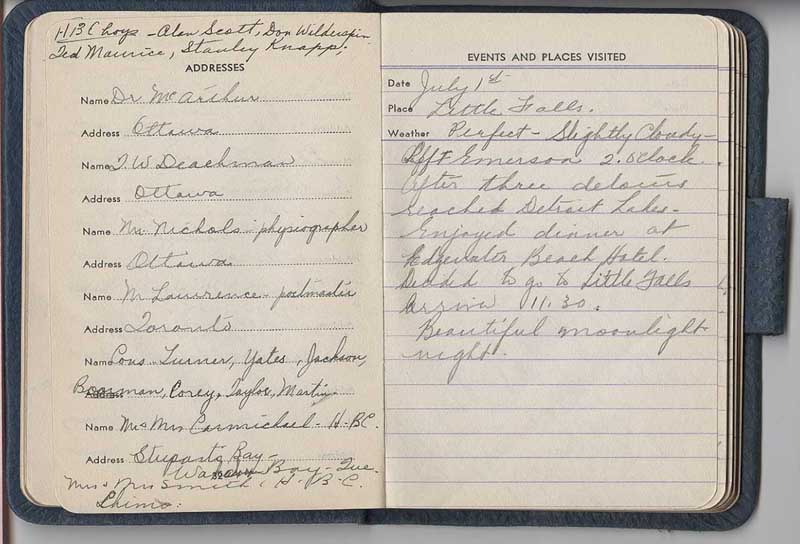 HBC boys - Alan Scott, Don Wilderspin
Ted Maurice, Stanley Knapp,
ADDRESSES
Name Dr McArthur
Address Ottawa
Name T. W Deachman
Address Ottawa
Name Mr Nichols - physiographer
Address Ottawa
Name Mr Lawrence - postmaster
Address Toronto
Name Cons. Turner, Yates, Jackson,
Address Boorman, Corey, Taylor, Martin
Name Mr & Mrs Carmichael - H. B C.
Address Stuparts Bay -
Wakeham Bay - Que.
Mr & Mrs Smith, H. B. C.
Chimo.
EVENTS AND PLACES VISITED
Date July 1st
Place Little Falls.
Weather Perfect - Slightly Cloudy -
Left Emerson 2. oclock.
After three detours
reached Detroit Lakes -
Enjoyed dinner at
Edgewater Beach Hotel.
Decided to go to Little Falls
Arrive 11.30.
Beautiful moonlight
night.